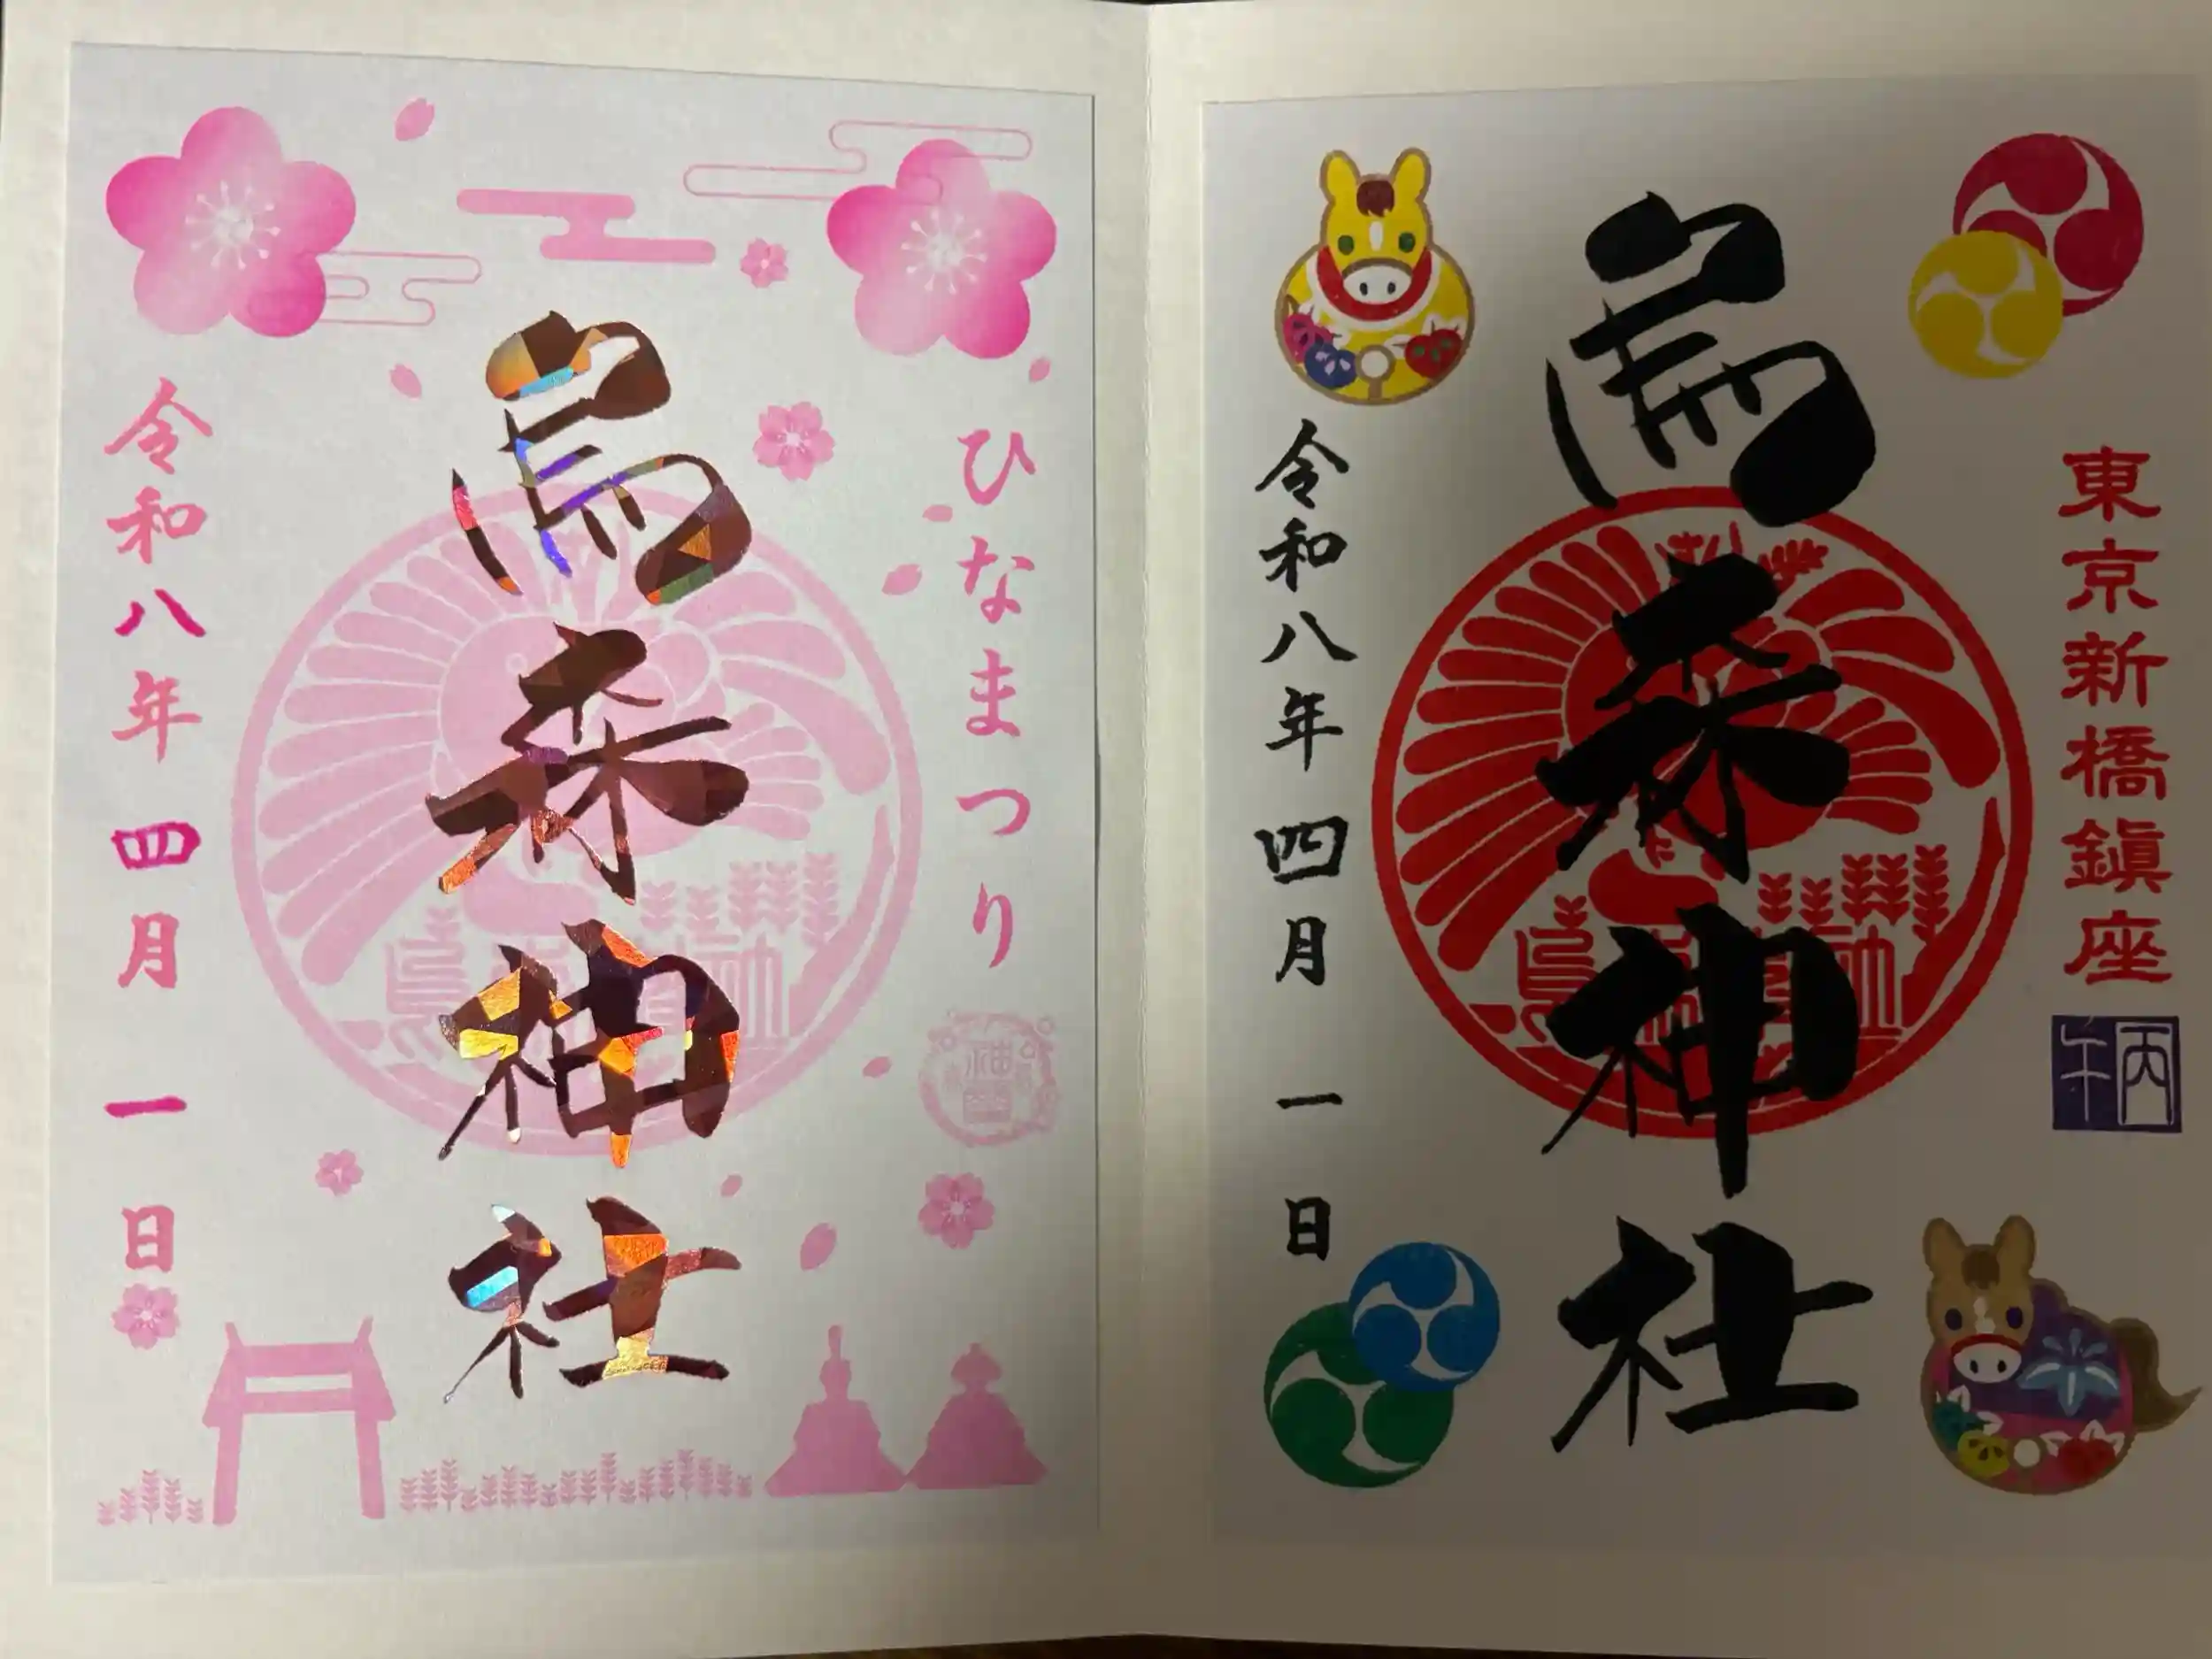 東京新橋鎮座
丙午
烏森神社
令和八年四月一日
ひなまつり
烏森神社
令和八年四月一日